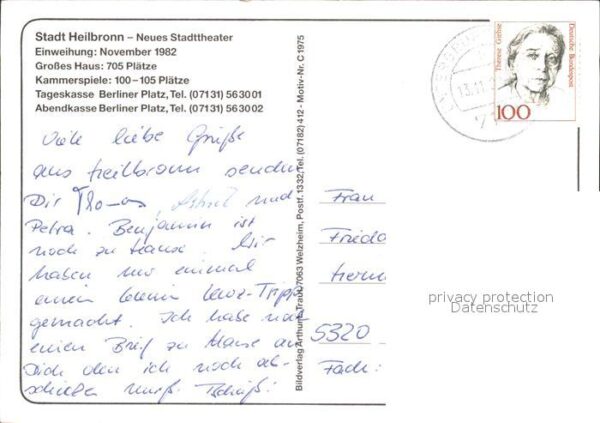 Stadt Heilbronn – Neues Stadttheater
Einweihung: November 1982
Großes Haus: 705 Plätze
Kammerspiele: 100–105 Plätze
Tageskasse Berliner Platz, Tel. (07131) 563001
Abendkasse Berliner Platz, Tel. (07131) 563002
Viele liebe Grüße
aus Heilbronn senden
Dir Thomas und
Petra. Benjamin ist
noch zu Hause. Wir
haben nur einmal
einen kleinen Kurz-Tripp
gemacht. Ich habe noch
einen Brief zu Hause an
Dich den ich noch ab-
schicken muß. Tschüß!
Bildverlag Arthur Traub, 7063 Welzheim, Postf. 1332, Tel. (07182) 412 - Motiv-Nr. C 1975
Therese Giehse
Deutsche Bundespost
100
13.11.
71
Frau
Frieda
Herma
5320
Fach:
privacy protection
Datenschutz